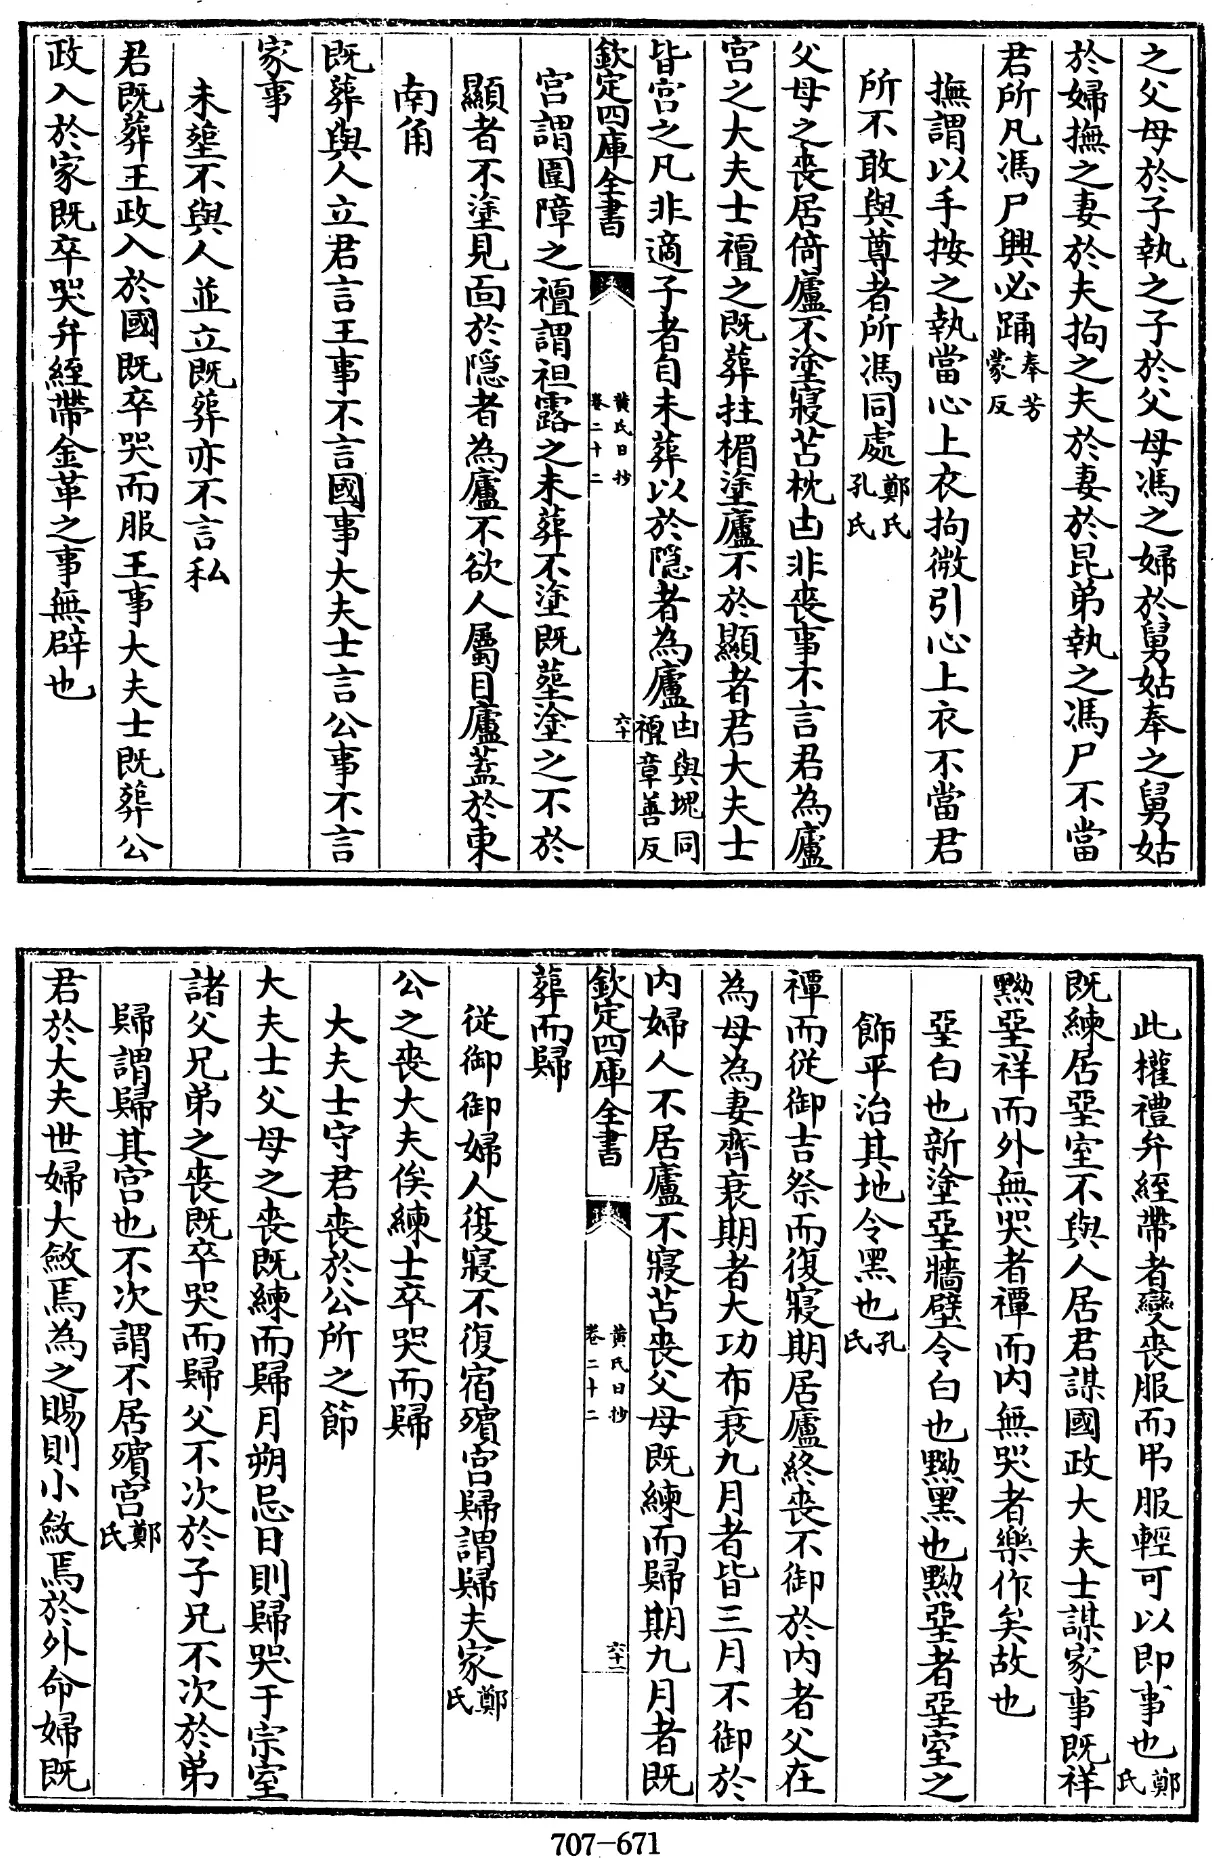 之父母於子執之子於父母馮之婦於舅姑奉之舅姑
於婦撫之妻於夫拘之夫於妻於昆弟執之馮尸不當
君所凡馮尸興必踊奉芳蒙反
撫謂以手按之執當心上衣拘微引心上衣不當君
所不敢與尊者所馮同處鄭氏孔氏
父母之喪居倚廬不塗寢苫枕凷非喪事不言君為廬
宫之大夫士襢之既葬拄楣塗廬不於顯者君大夫士
皆宫之凡非適子者自未葬以於隠者為廬凷與塊同襢章善反
欽定四庫全書
黃氏日抄
卷二十二
六十
宫謂圍障之襢謂袒露之未葬不塗既塟塗之不於
顯者不塗見面於隠者為廬不欲人屬目廬葢於東
南角
既葬與人立君言王事不言國事大夫士言公事不言
家事
未塟不與人並立既葬亦不言私
君既葬王政入於國既卒哭而服王事大夫士既葬公
政入於家既卒哭弁絰帶金革之事無辟也
此權禮弁絰帶者變喪服而弔服輕可以即事也鄭氏
既練居堊室不與人居君謀國政大夫士謀家事既祥
黝堊祥而外無哭者禫而内無哭者樂作矣故也
堊白也新塗堊牆壁令白也黝黑也黝堊者堊室之
飾平治其地令黑也孔氏
禫而從御吉祭而復寢期居廬終喪不御於内者父在
為母為妻齊衰期者大功布衰九月者皆三月不御於
内婦人不居廬不寢苫喪父母既練而歸期九月者既
欽定四庫全書
黃氏日抄
卷二十二
六十一
葬而歸
從御御婦人復寢不復宿殯宫歸謂歸夫家鄭氏
公之喪大夫俟練士卒哭而歸
大夫士守君喪於公所之節
大夫士父母之喪既練而歸月朔忌日則歸哭于宗室
諸父兄弟之喪既卒哭而歸父不次於子兄不次於弟
歸謂歸其宫也不次謂不居殯宫鄭氏
君於大夫世婦大斂焉為之賜則小斂焉於外命婦既
707-671